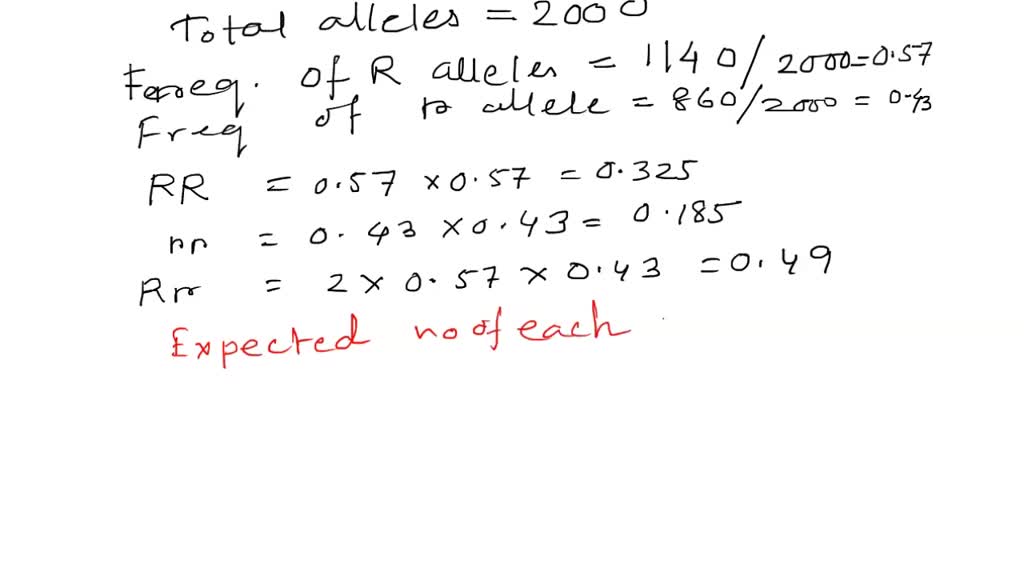 Total alleles = 2000
Freq. of R alleles = 1140/2000=0.57
Freq of r allele = 860/2000 = 0.43
RR = 0.57 x 0.57 = 0.325
rr = 0.43 x 0.43 = 0.185
Rr = 2 x 0.57 x 0.43 = 0.49
Expected no of each